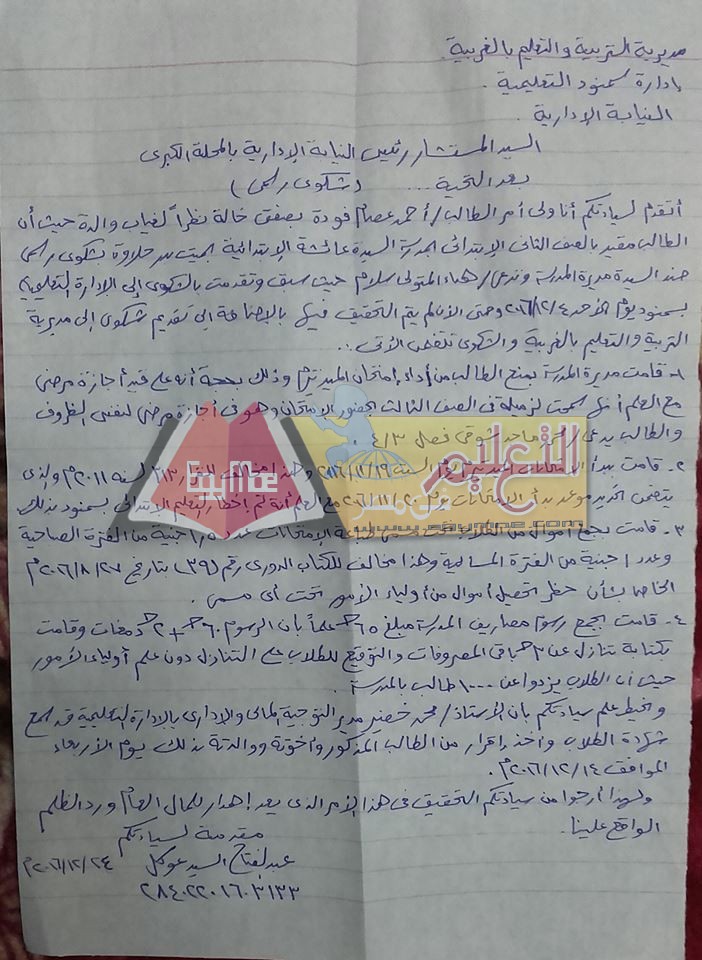 مديرية التربية والتعليم بالغربية.
إدارة سمنود التعليمية.
النيابة الإدارية.
السيد المستشار رئيس النيابة الإدارية بالمحلة الكبرى
بعد التحية ... (شكوى رسمى)
أتقدم لسيادتكم أنا ولى أمر الطالب/ أحمد عصام فودة بصفتى خالة نظراً لغياب والدة حيث أن
الطالب مقيد بالصف الثانى الإبتدائى بمدرسة السيدة عائشة الإبتدائية بميت بدر حلاوة بشكوى رسمى
ضد السيدة مديرة المدرسة وتدعى/ هناء المتولى سلام حيث سبق وتقدمت بالشكوى إلى الإدارة التعليمية
بسمنود يوم الأحد ٢٠١٦/١٢/٤ وحتى الأن لم يتم التحقيق فيها بالإضافة إلى تقديم شكوى إلى مديرية
التربية والتعليم بالغربية والشكوى تتلخص الأتى:
١- قامت مديرة المدرسة بمنع الطالب من أداء إمتحان الميدتيرم وذلك بحجة أنه على قيد أجازة مرضى
مع العلم أنها سمحت لزميله فى الصف الثالث بحضور الإمتحان وهو فى أجازة مرضى لنفس الظروف
والطالب يدعى/ ماجد شوقى فصل ٤/٣.
٢- قامت ببدأ الإمتحانات السبت ٢٠١٦/١١/١٩ وهذا مخالف للقرار ٣١٣ لسنة ٢٠١١م والذى
يتضمن موعد بدأ الإمتحانات يوم ٢٠١٦/١١/٢٠ مع العلم أنه تم إخطار التعليم الإبتدائى بسمنود بذلك.
٣- قامت بجمع أموال من تحت مسمى طباعة الإمتحانات جنية من الفترة الصباحية
وعدد ١ جنية من الفترة المسائية وهذا مخالف للكتاب الدورى رقم (٣٩) بتاريخ ٢٠١٦/٨/٢٧م
الخاص بشأن حظر تحصيل أموال من أولياء الأمور تحت أى مسمى.
٤- قامت بجمع رسوم مصاريف المدرسة مبلغ ٦٥ج علماً بان الرسوم ٦٠ج + ٢ج دمغات وقامت
بكتابة تنازل عن ٣ج باقى المصروفات والتوقيع للطلاب على التنازل دون علم أولياء الأمور
حيث أن الطلاب يزدوا عن ١٠٠٠ طالب بالمدرسة.
ونحيط علم سيادتكم بان الأستاذ/ محمد خضير مدير التوجية المالى والإدارى بالإدارة التعليمية قد سمع
شهادة الطلاب واخذ إقرار من الطالب المذكور وأخوتة ووالدتة بذلك يوم الأربعاء
الموافق ٢٠١٦/١٢/١٤م.
ولهذا أرجوا من سيادتكم التحقيق فى هذا الأمر الذى يعد إهدار للمال العام ورد الظلم
الواقع علينا.
مقدمة لسيادتكم
عبدالفتاح السيد عوكل ٢٠١٦/١٢/٢٤م
٢٨٤٠٢٢٠١٦٠٣١٣٣